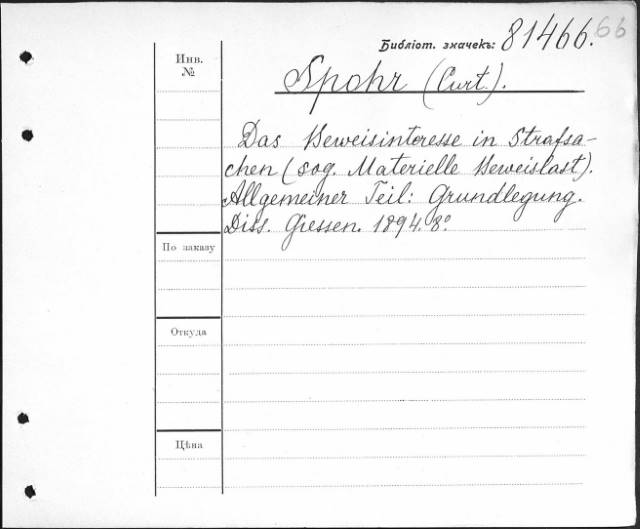 Библіот. значекъ: 81466. 66
Инв.
№
Spohr (Curt.).
Das Beweisinteresse in Strafsa-
chen (sog. Materielle Beweislast).
Allgemeiner Teil: Grundlegung.
Diss. Giessen. 1894. 8º
По заказу
Откуда
Цѣна